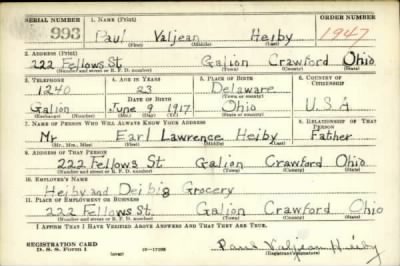 SERIAL NUMBER 1. NAME (Print) ORDER NUMBER
993 Paul Valjean Heiby 1947
(First) (Middle) (Last)
2. ADDRESS (Print)
222 Fellows St. Galion Crawford Ohio
(Number and street or R. F. D. number) (Town) (County) (State)
3. TELEPHONE 4. AGE IN YEARS 5. PLACE OF BIRTH 6. COUNTRY OF CITIZENSHIP
1240 23 Delaware
(Town or county)
DATE OF BIRTH
Galion June 9 1917 Ohio U.S.A
(Exchange) (Number) (Mo.) (Day) (Yr.) (State or country)
7. NAME OF PERSON WHO WILL ALWAYS KNOW YOUR ADDRESS 8. RELATIONSHIP OF THAT PERSON
Mr Earl Lawrence Heiby Father
(Mr., Mrs., Miss) (First) (Middle) (Last)
9. ADDRESS OF THAT PERSON
222 Fellows St. Galion Crawford Ohio
(Number and street or R. F. D. number) (Town) (County) (State)
10. EMPLOYER'S NAME
Heiby and Deibig Grocery
11. PLACE OF EMPLOYMENT OR BUSINESS
222 Fellows St. Galion Crawford Ohio
(Number and street or R. F. D. number) (Town) (County) (State)
I AFFIRM THAT I HAVE VERIFIED ABOVE ANSWERS AND THAT THEY ARE TRUE.
REGISTRATION CARD
D. S. S. Form 1 (over) 16—17105 Paul Valjean Heiby
(Registrant's signature)